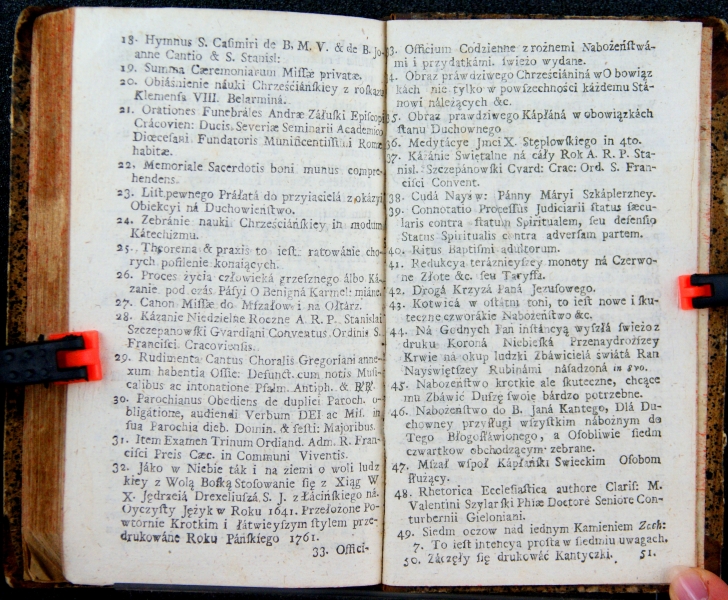 18. Hymnus S. Casimiri de B. M. V. & de B. Jo-
anne Cantio & S. Stanisl:
19. Summa Cæremoniarum Missæ privatæ.
20. Obiáśnienie náuki Chrześciáńskiey z roskazu
Klemensa VIII. Belarminá.
21. Orationes Funebráles Andræ Záłuski Episcopi
Crácovien: Ducis, Severiæ Seminarii Academico
Diœcesani Fundatoris Munificentissimi Romæ
habitæ.
22. Memoriale Sacerdotis boni munus compre-
hendens.
23. List pewnego Práłatá do przyiacielá z okázyi
Obiekcyi ná Duchowieństwo.
24. Zebránie nauki Chrześciáńskiey in modum
Kátechizmu.
25. Theorema & praxis to iest: ratowánie cho-
rych posilenie konaiących.
26. Proces życia człowieká grzesznego álbo Ká-
zanie pod czás Pásyi O Benigná Karmel: miáne.
27. Canon Missæ do Mszałow i na Ołtarz.
28. Kázanie Niedzielne Roczne A. R. P. Stanislai
Szczepanowski Gvardiani Conventus Ordinis S.
Francisci. Cracoviensis.
29. Rudimenta Cantus Choralis Gregoriani anne-
xum habentia Offic: Defunct. cum notis Musi-
calibus ac intonatione Psalm. Antiph. & RR.
30. Parochianus Obediens de duplici Paroch. o-
bligátione, audiendi Verbum DEI ac Mis. in
sua Parochia dieb. Domin. & festi: Majoribus.
31. Item Examen Trinum Ordiand. Adm. R. Fran-
cisci Preis Cæc. in Communi Viventis.
32. Jáko w Niebie ták i na ziemi o woli ludz
kiey z Wolą Boską Stosowanie się z Xiąg W
X. Jędrzeiá Drexeliuszá S. J. z Łácińskiego ná
Oyczysty Język w Roku 1641. Przełożone Po-
wtornie Krotkim i łátwieyszym stylem prze-
drukowáne Roku Páńskiego 1761.
33. Offici-
33. Officium Codzienne z rożnemi Nabożeństwá-
mi i przydatkámi. świeżo wydane.
4. Obraz práwdziwego Chrześciániná w O bowiąz
kách nie tylko w powszechności każdemu Stá-
nowi náleżących &c.
35. Obraz prawdziwego Kápłáná w obowiązkách
stanu Duchownego
36. Medytácye Jmci X. Stęplowskiego in 4to.
37. Kázánie Swiętalne ná cáły Rok A. R. P. Sta-
nisl. Szczepánowski Gvard: Crac: Ord. S. Fran-
cisci Convent.
38. Cudá Nayśw: Pánny Máryi Szkáplerzney.
39. Connotatio Processus Judiciarii status sæcu-
laris contra statum Spiritualem, seu defensio
Status Spiritualis contra adversam partem.
40. Ritus Baptismi adultorum.
41. Redukcya teráznieyszey monety ná Czerwo-
ne Złote &c. seu Taryffa.
42. Drogá Krzyżá Paná Jezusowego.
43. Kotwicá w ostátni toni, to iest nowe i sku-
teczne czworákie Nabożeństwo &c.
44. Ná Godnych Pan instáncyą wyszłá świeżo z
druku Koroná Niebieská Przenaydroższey
Krwie ná okup ludzki Zbáwicielá światá Ran
Nayświętszey Rubinámi násadzoná in 8vo.
45. Nabożeństwo krotkie ale skuteczne, chcące
mu Zbáwić Duszę swoię bárdzo potrzebne.
46. Nabożeństwo do B. Janá Kantego, Dlá Du-
chowney przysługi wszystkim nabożnym do
Tego Błogosławionego, a Osobliwie siedm
czwartkow obchodzącym zebrane.
47. Mszał wspoł Kápłáński Swieckim Osobom
służący.
48. Rhetorica Ecclesiastica authore Claris: M.
Valentini Szylarski Phiæ Doctore Seniore Con-
turbernii Gieloniani.
49. Siedm oczow nad iednym Kamieniem Zach:
7. To iest intencya prosta w siedmiu uwagach.
50. Záczęły się drukowáć Kantyczki. 51.